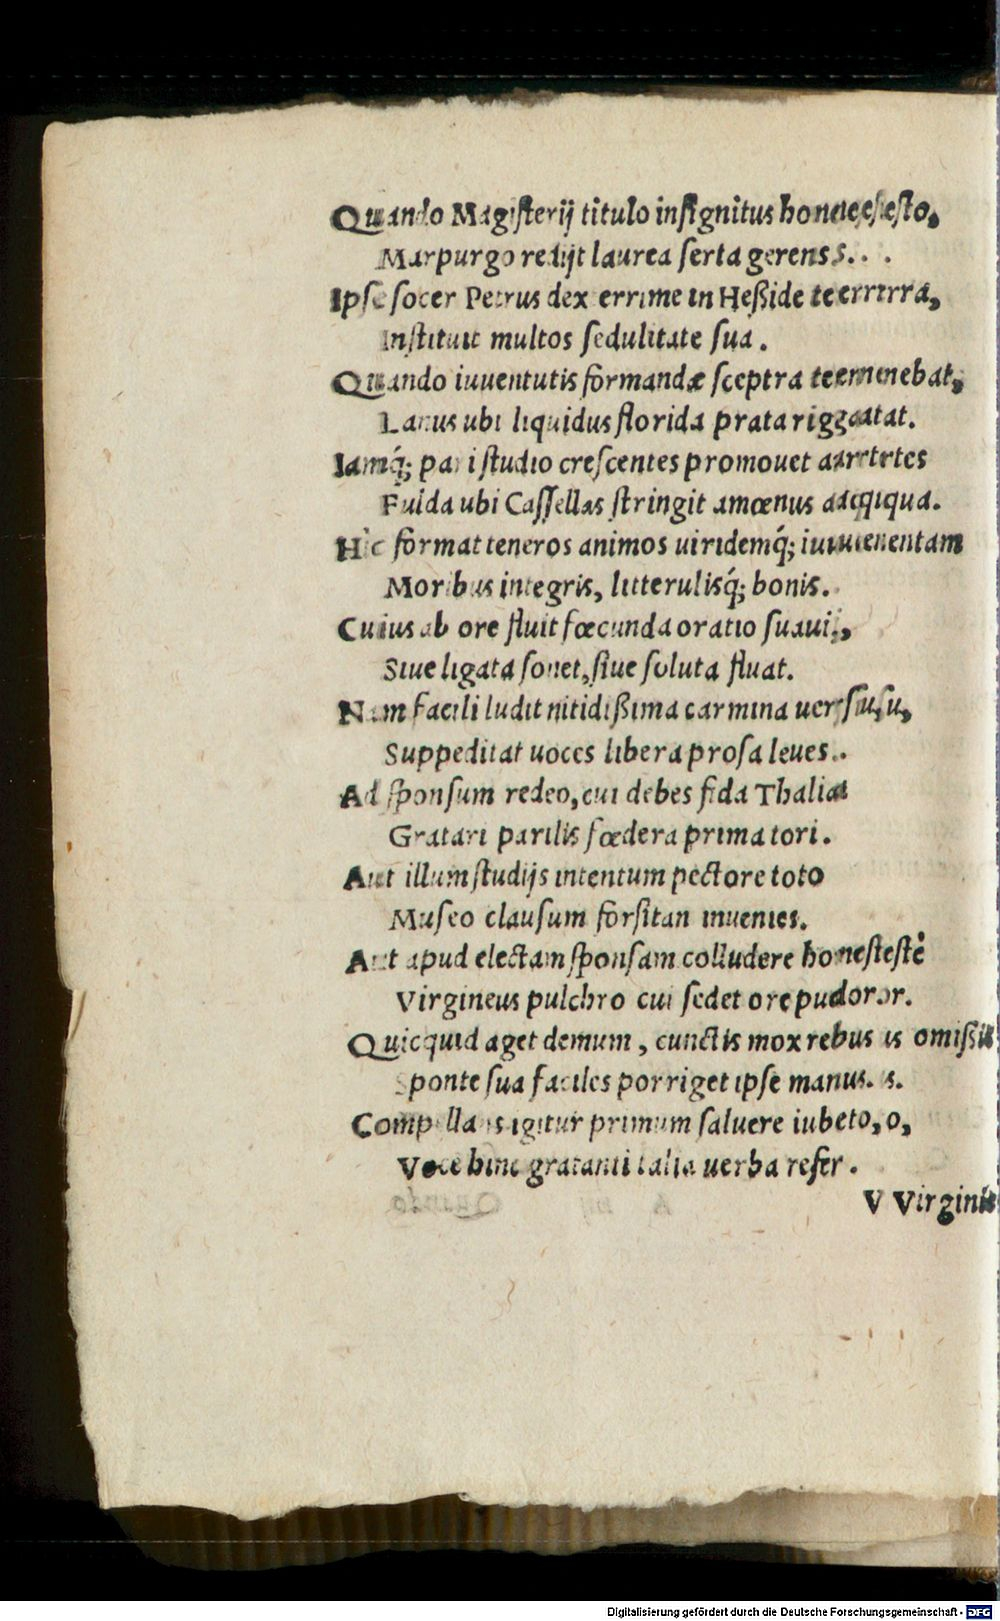 Quando Magisterij titulo insignitus honesto,
Marpurgo redijt laurea serta gerens.
Ipse socer Petrus dexterrime in Heßide terra,
Instituit multos sedulitate sua.
Quando iuuentutis formandæ sceptra tenebat,
Lanus ubi liquidus florida prata rigat.
Iamq́; pari studio crescentes promouet artes
Fulda ubi Cassellas stringit amœnus aqua.
Hic format teneros animos uiridemq́; iuuentam
Moribus integris, litterulisq́; bonis.
Cuius ab ore fluit fœcunda oratio suaui,
Siue ligata sonet, siue soluta fluat.
Nam facili ludit nitidißima carmina uersu,
Suppeditat uoces libera prosa leues.
Ad sponsum redeo, cui debes fida Thalia
Gratari parilis fœdera prima tori.
Aut illum studijs intentum pectore toto
Museo clausum forsitan inuenies.
Aut apud electam sponsam colludere honestè
Virgineus pulchro cui sedet ore pudor.
Quicquid aget demum, cunctis mox rebus omißis
Sponte sua faciles porriget ipse manus.
Compellans igitur primum saluere iubeto,
Voce hinc gratanti talia uerba refer.
Virginis
Digitalisierung gefördert durch die Deutsche Forschungsgemeinschaft - DFG